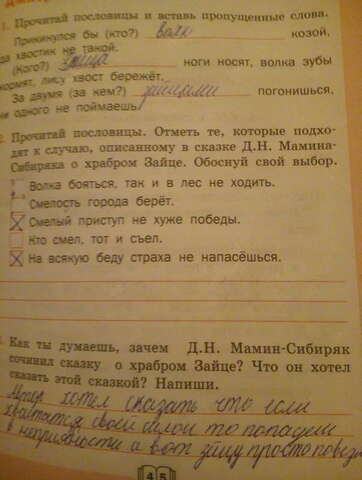 1. Прочитай пословицы и вставь пропущенные слова.
Прикинулся бы (кто?) волк козой,
да хвостик не такой.
(Кого?) Зайца ноги носят, волка зубы
кормят, лису хвост бережёт.
За двумя (за кем?) зайцами погонишься,
ни одного не поймаешь.
2. Прочитай пословицы. Отметь те, которые подхо-
дят к случаю, описанному в сказке Д.Н. Мамина-
Сибиряка о храбром Зайце. Обоснуй свой выбор.
Волка бояться, так и в лес не ходить.
Смелость города берёт.
Смелый приступ не хуже победы.
Кто смел, тот и съел.
На всякую беду страха не напасёшься.
Как ты думаешь, зачем Д.Н. Мамин-Сибиряк
сочинил сказку о храбром Зайце? Что он хотел
сказать этой сказкой? Напиши.
Автор хотел сказать что если
хвастатся своей силой то попадеш
в неприятности а вот зайцу просто повезл
45